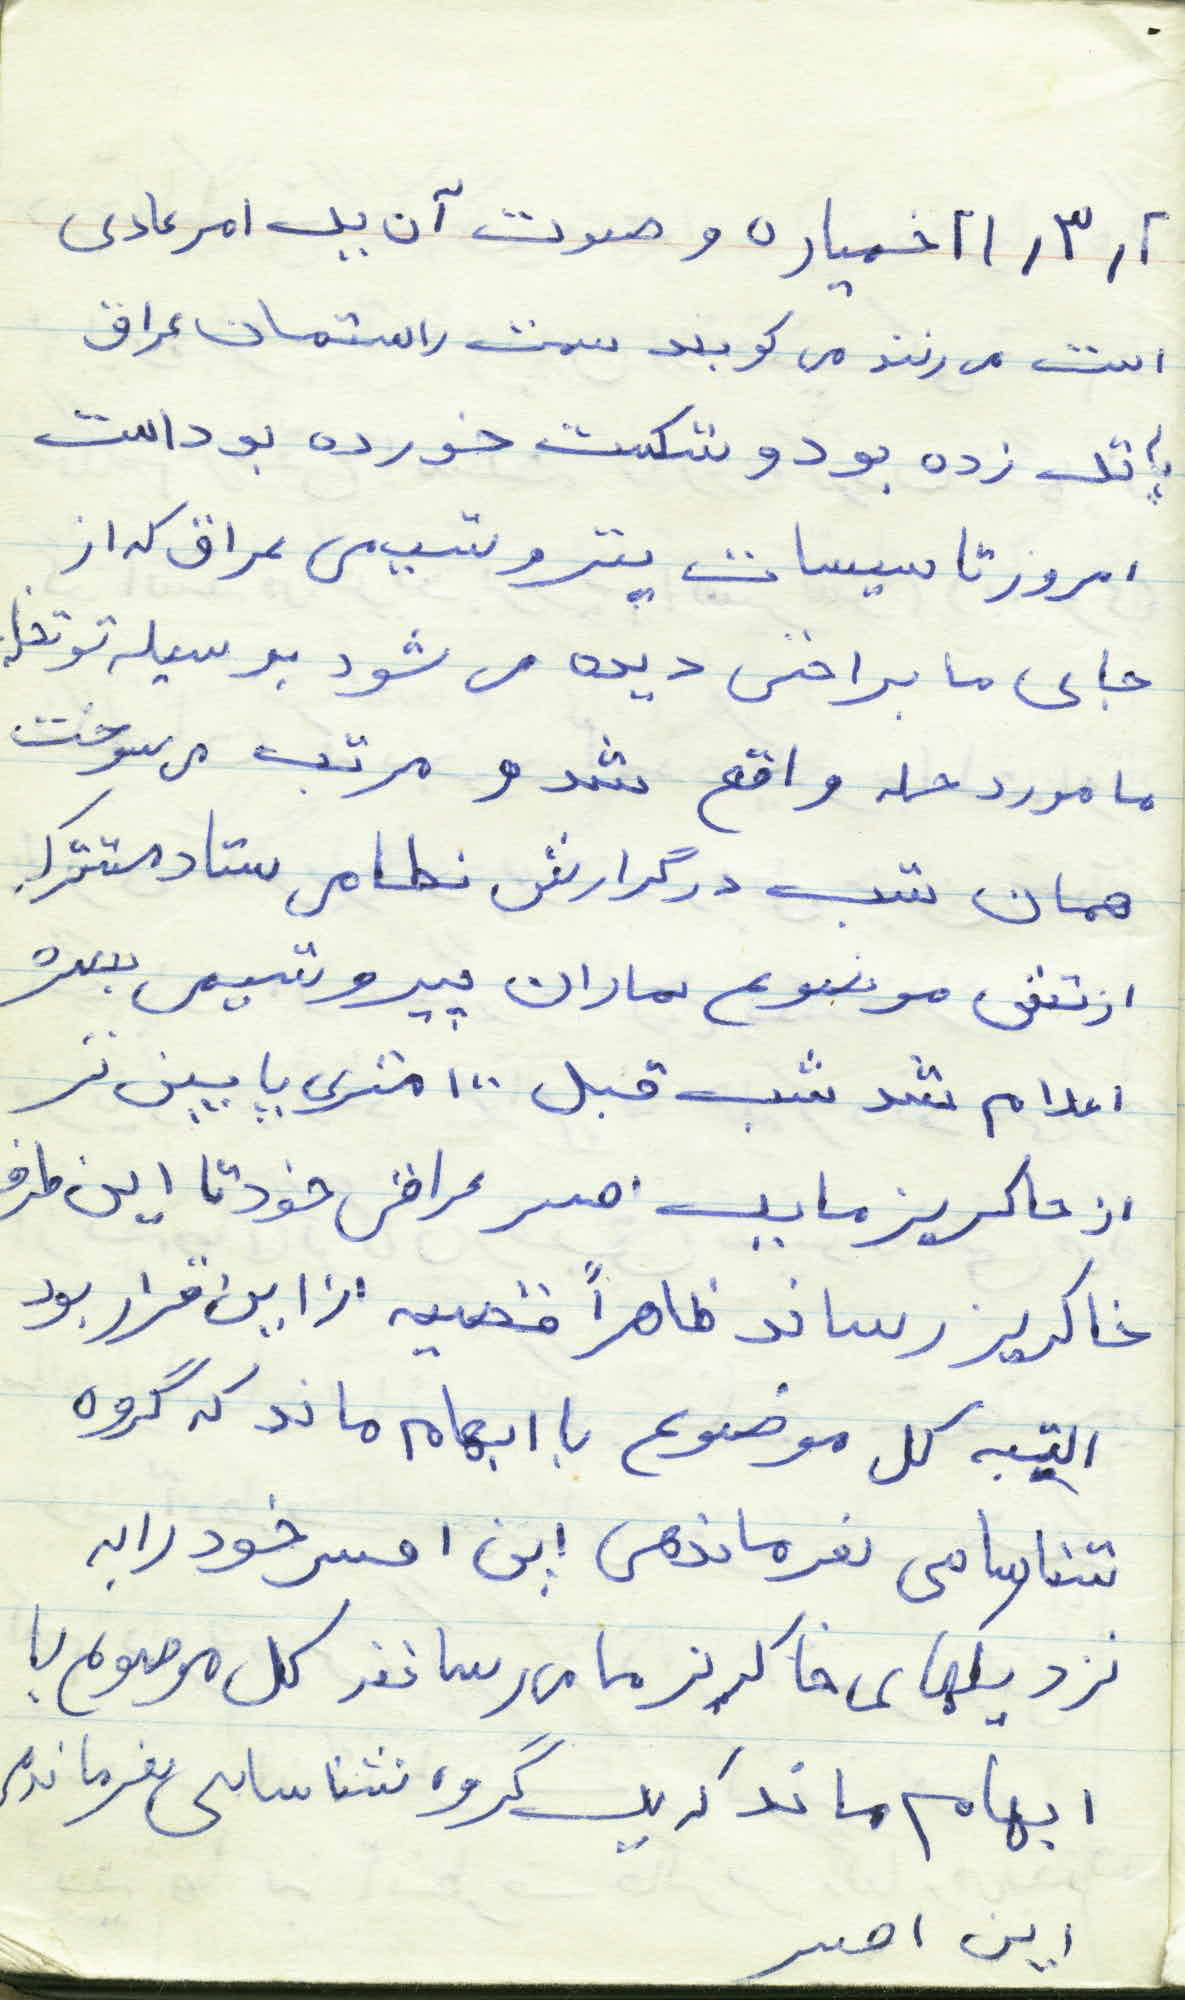 ۲۱٫۳٫۲ خمپاره و صوت آن یک امر عادی
است می زنند می کوبند سمت راستمان عراق
پاتک زده بود و شکست خورده بود است
امروز تاسیسات پتروشیمی عراق که از
جای ما براحتی دیده می شود بوسیله توپخانه
ما مورد حمله واقع شد و مرتب می سوخت
همان شب در گزارش نظامی ستاد مشترک
ارتش موضوع بماران پیروشیمی بصره
اعلام شد شب قبل ۱۰۰ متری پایین تر
از خاکریز ما یک افسر عراقی خود تا این طرف
خاکریز رساند ظاهراً قضیه از این قرار بود
البته کل موضوع با ابهام ماند که گروه
شناسایی بفرماندهی این افسر خود را به
نزدیکهای خاکریز ما می رسانند کل موضوع با
ابهام ماند که یک گروه شناسایی بفرماندهی
این افسر